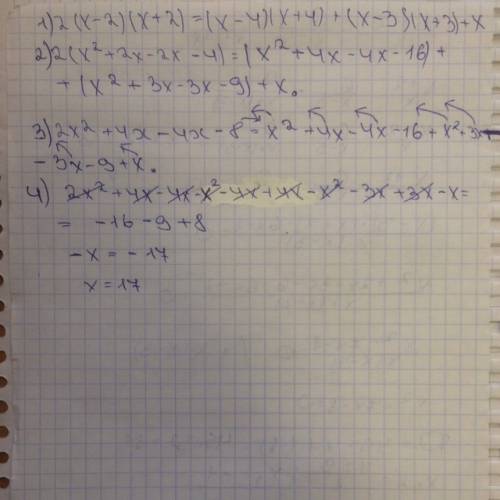 1) 2(x-2)(x+2)=(x-4)(x+4)+(x-3)(x+3)+x
2) 2(x²+2x-2x-4)=(x²+4x-4x-16)+
+(x²+3x-3x-9)+x.
3) 2x²+4x-4x-8=x²+4x-4x-16+x²+3x-
-3x-9+x.
4) 2x²+4x-4x-x²-4x+4x-x²-3x+3x-x=
= -16-9+8
-x=-17
x=17